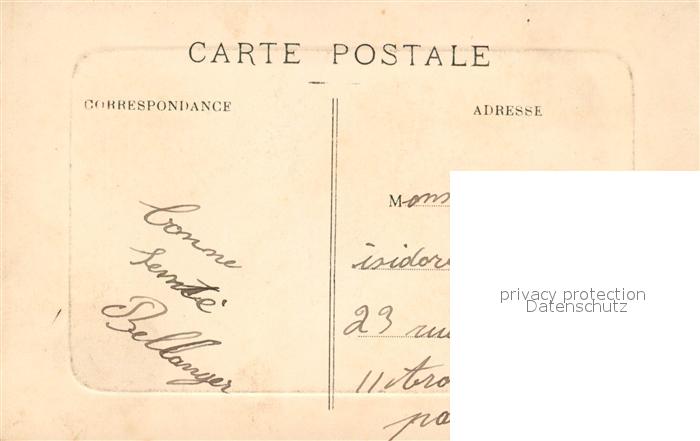 CARTE POSTALE
CORRESPONDANCE
ADRESSE
Bonne
Semté
Bellanger
Mons
isidore
23 rue
11 Aro
pa
privacy protection
Datenschutz